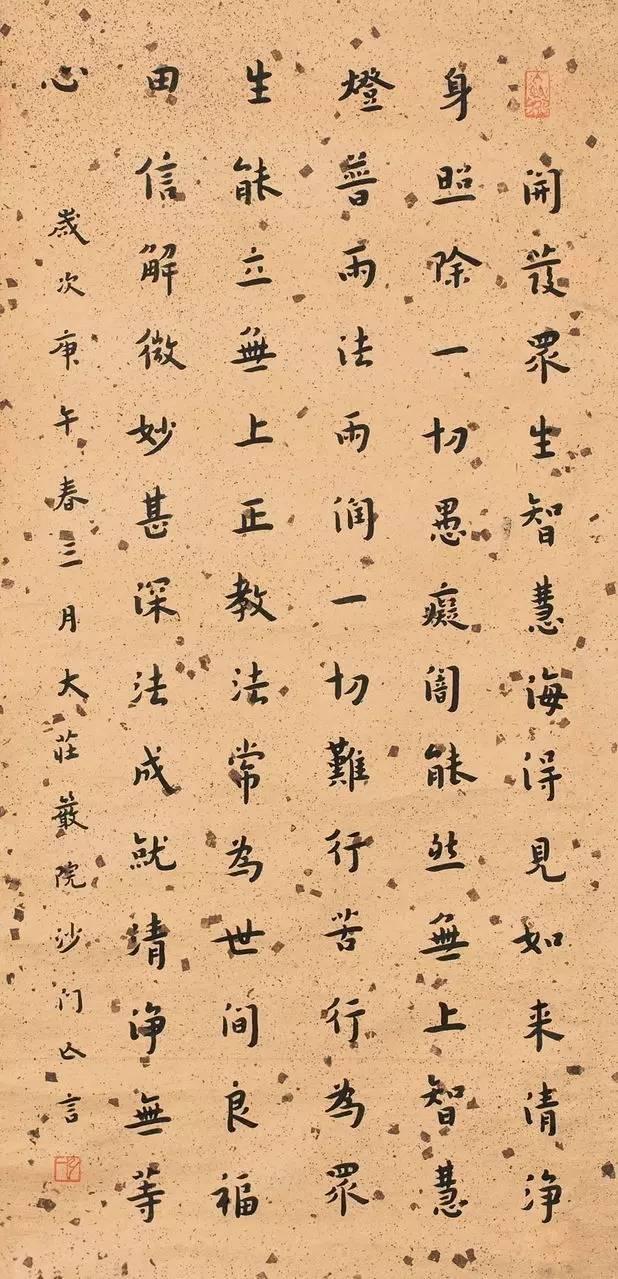 開發眾生智慧海得見如来清淨
身照除一切愚癡闇能然無上智慧
燈普雨法雨润一切難行苦行為眾
生能立無上正教法常為世间良福
田信解微妙甚深法成就清淨無等
心
歲次庚午春三月大莊嚴院沙门亾言